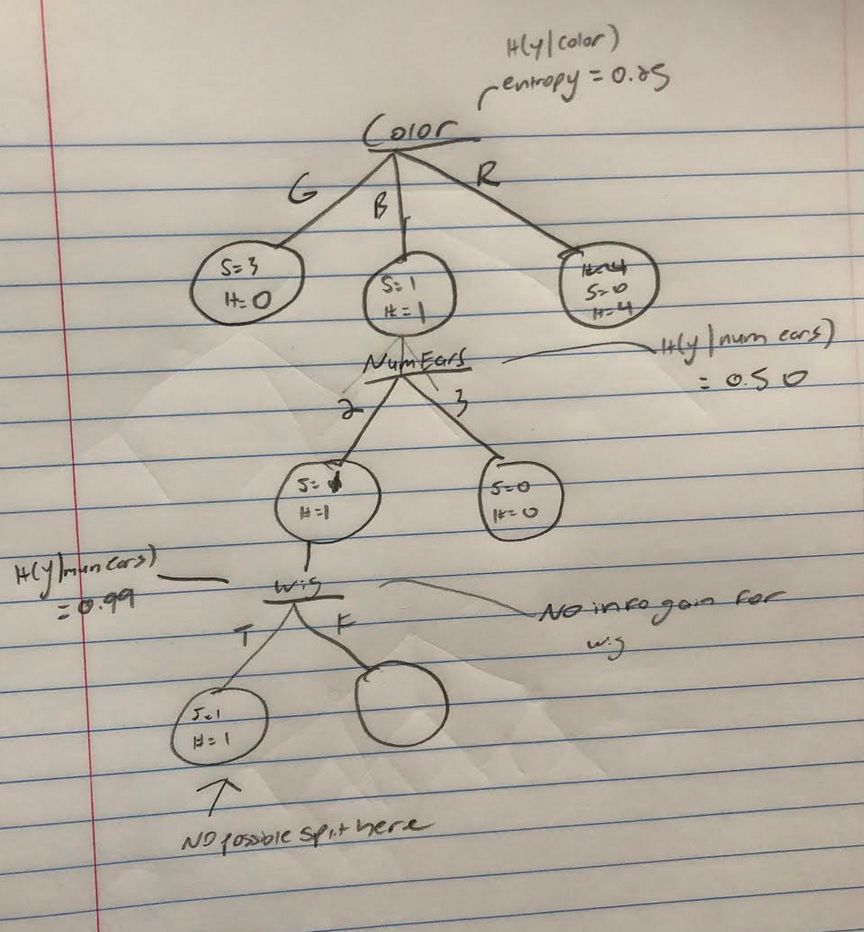 H(y|color)
entropy = 0.25
Color
G
B
R
S=3
H=0
S=1
H=1
H=4
S=0
H=4
NumEars
H(y|num ears)
= 0.50
2
3
S=1
H=1
S=0
H=0
H(y|num ears)
= 0.99
wig
No info gain for
wig
T
F
S=1
H=1
NO possible split here